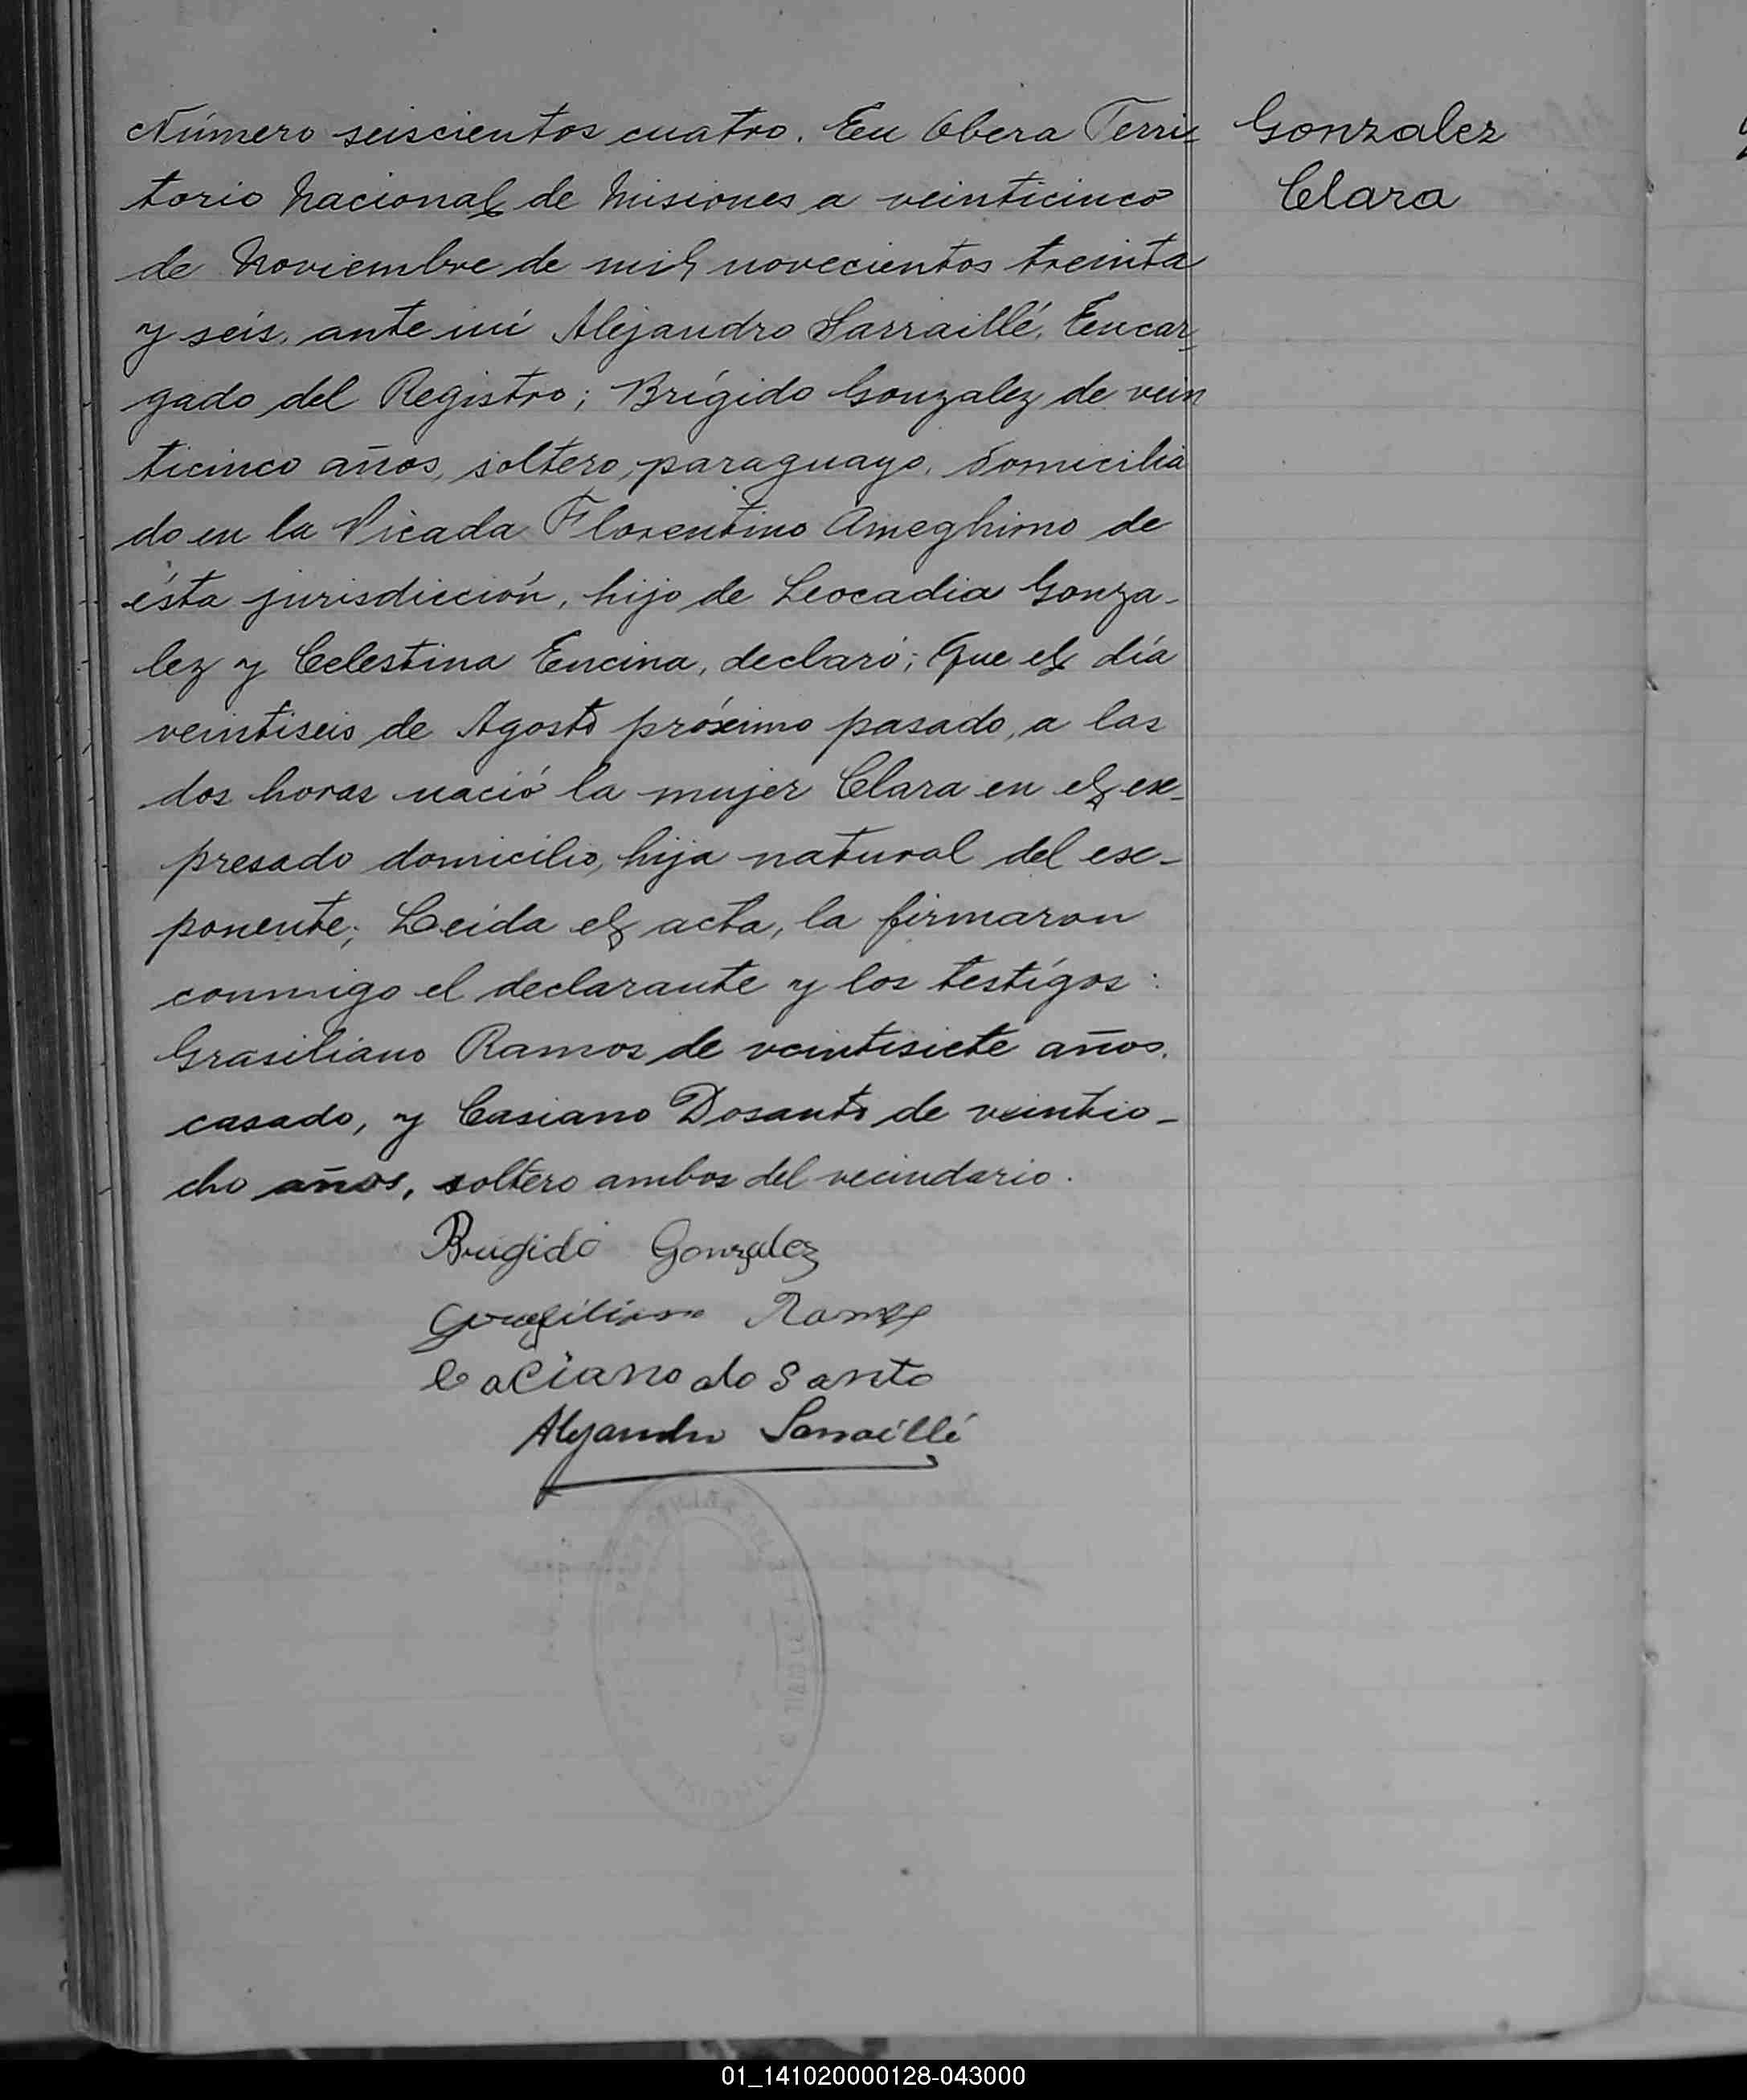 Número seiscientos cuatro. En Obera Terri-
torio Nacional de Misiones a veinticinco
de Noviembre de mil novecientos treinta
y seis, ante mi Alejandro Sarraillé, Encar-
gado del Registro; Brígido Gonzalez de vein
ticinco años, soltero, paraguayo, domicilia
do en la Picada Florentino Ameghimo de
ésta jurisdicción, hijo de Leocadia Gonza-
lez y Celestina Encina, declaró; Que el día
veintiseis de Agosto próximo pasado, a las
dos horas nació la mujer Clara en el ex-
presado domicilio, hija natural del ex-
ponente; Leida el acta, la firmaron
conmigo el declarante y los testígos:
Grasiliano Ramos de veintisiete años,
casado, y Casiano Dosanto de veintio-
cho años, soltero ambos del vecindario.
Brigido Gonzalez
Ramos
Caciano do Santo
Alejandro Sarraillé
Gonzalez
Clara
01_141020000128-043000